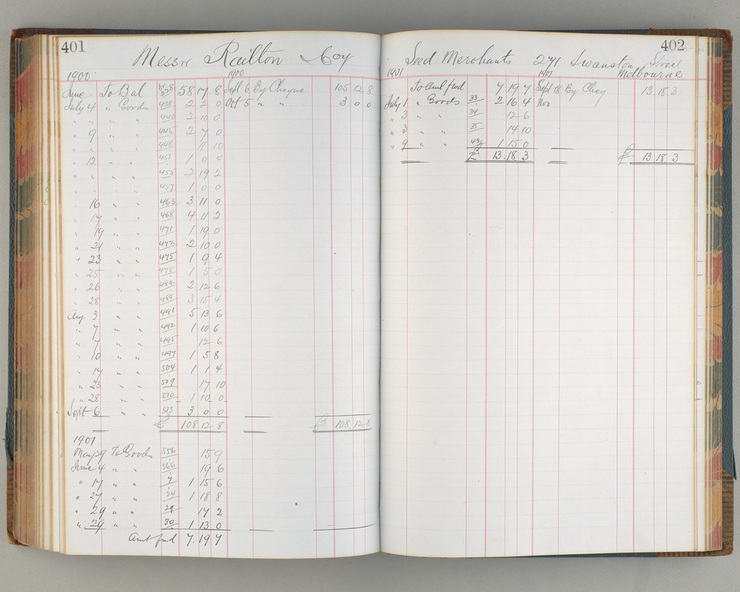 401
Messrs Railton & Coy
1900 1900
June To Bal 58 17 8 Sept 6 By Cheque 105 12 8
July 4 " Goods 438 2 2 0 Oct 5 " " 3 0 0
" " " 440 2 10 0
" 9 " " 445 2 7 0
" " " 448 11 10
" 12 " " 451 1 0 0
" " " 455 2 19 2
" " " 457 1 0 0
" 16 " " 463 3 11 0
" 17 " " 468 4 11 2
" 19 " " 471 1 19 0
" 21 " " 473 2 10 0
" 23 " " 475 1 9 4
" 25 " " 478 1 5 0
" 26 " " 2 12 6
" 28 " " 3 15 4
Aug 3 " " 491 5 13 6
" 7 " " 492 1 10 6
" 7 " " 495 12 6
" 10 " " 497 1 5 8
" 17 " " 504 1 1 4
" 23 " " 509 17 10
" 28 " " 510 1 10 0
Sept 6 " " 513 3 0 0
£ 108 12 8 £ 108 12 8
1901
May 9 To Goods 556 15 9
June 4 " " 566 19 6
" 17 " " 7 1 15 6
" 27 " " 24 1 18 8
" 29 " " 29 17 2
" 29 " " 30 1 13 0
Amt fwd 7 19 7
402
Seed Merchants 271 Swanston Street
Melbourne
1901 1901
To Amt fwd 7 19 7 Sept 18 By Cheq 13 18 3
July 1 " Goods 33 2 16 4 Nov
" 3 " " 34 12 6
" " " 35 14 10
" 9 " " 43 1 15 0
£ 13 18 3 £ 13 18 3